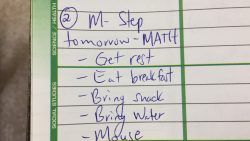 ② M-Step
tomorrow - MATH
- Get rest
- Eat breakfast
- Bring snack
- Bring Water
- Mouse
SCIENCE / HEALTH
SOCIAL STUDIES